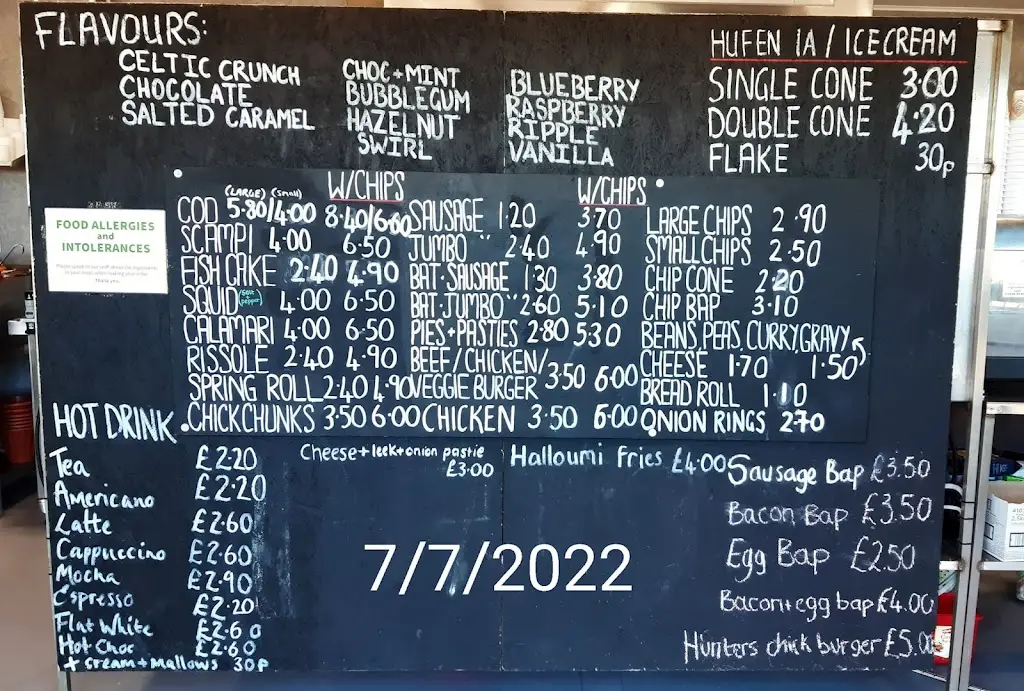 FLAVOURS:
CELTIC CRUNCH
CHOCOLATE
SALTED CARAMEL
CHOC+MINT
BUBBLEGUM
HAZELNUT
SWIRL
BLUEBERRY
RASPBERRY
RIPPLE
VANILLA
HUFEN IA / ICECREAM
SINGLE CONE 3.00
DOUBLE CONE 4.20
FLAKE 30p
FOOD ALLERGIES
and
INTOLERANCES
(LARGE) (Small) W/CHIPS
COD 5.80/4.00 8.40/6.60
SCAMPI 4.00 6.50
FISH CAKE 2.40 4.90
SQUID Salt + pepper 4.00 6.50
CALAMARI 4.00 6.50
RISSOLE 2.40 4.90
SPRING ROLL 2.40 4.90
CHICK CHUNKS 3.50 6.00
W/CHIPS
SAUSAGE 1.20 3.70
JUMBO " 2.40 4.90
BAT. SAUSAGE 1.30 3.80
BAT. JUMBO " 2.60 5.10
PIES+PASTIES 2.80 5.30
BEEF/CHICKEN/
VEGGIE BURGER 3.50 6.00
CHICKEN 3.50 6.00
LARGE CHIPS 2.90
SMALL CHIPS 2.50
CHIP CONE 2.20
CHIP BAP 3.10
BEANS, PEAS, CURRY, GRAVY
CHEESE 1.70 1.50
BREAD ROLL 1.10
ONION RINGS 2.70
HOT DRINK
Tea £2.20
Americano £2.20
Latte £2.60
Cappuccino £2.60
Mocha £2.90
Espresso £2.20
Flat White £2.60
Hot Choc £2.60
+ cream+Mallows 30p
Cheese+leek+onion pastie
£3.00
Halloumi Fries £4.00
Sausage Bap £3.50
Bacon Bap £3.50
Egg Bap £2.50
Bacon+egg bap £4.00
Hunters chick burger £5.00
7/7/2022